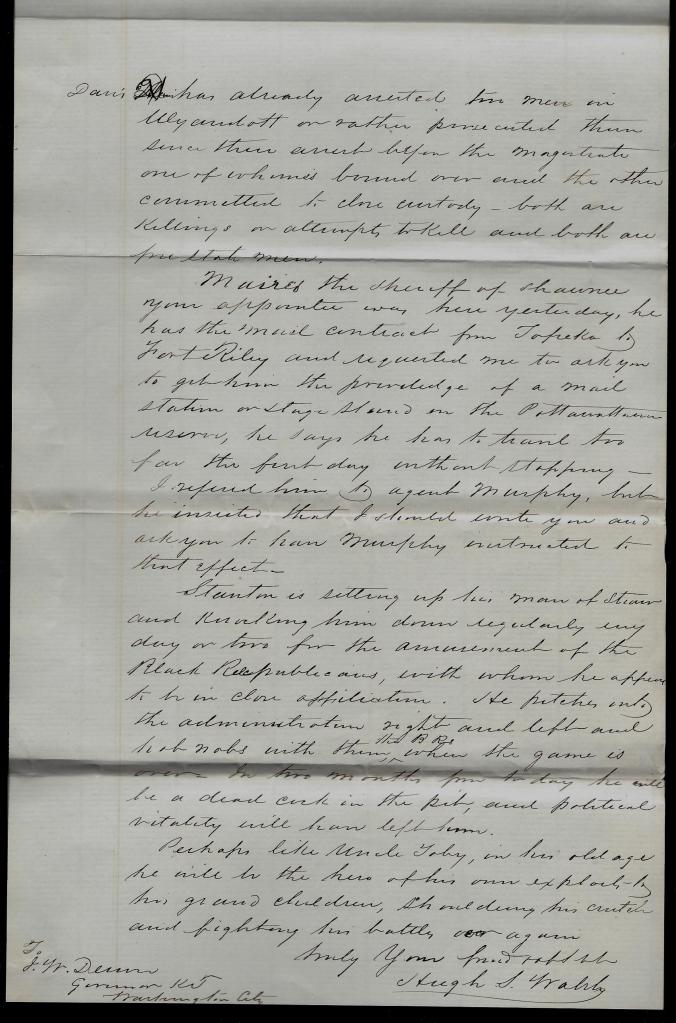 Davis has already arrested two men in
Wyandott or rather prosecuted them
since their arrest before the magistrate
one of whom is bound over and the other
committed to close custody – both are
Killings or attempts to kill and both are
free state men.
Maires the sheriff of Shawnee
your appointee was here yesterday, he
has the mail contract from Topeka to
Fort Riley and requested me to ask you
to get him the priviledge of a mail
station or stage stand on the Pottawattamie
reserve, he says he has to travel too
far the first day without stopping –
I refered him to agent Murphy, but
he insisted that I should write you and
ask you to have Murphy instructed to
that effect –
Stanton is setting up his man of straw
and knocking him down regularly every
day or two for the amusement of the
Black Republicans, with whom he appears
to be in close affiliation. He pitches into
the administration right and left and
the B Rs
hob nobs with them, when the game is
over – In two months from today he will
be a dead cock in the pit, and political
vitality will have left him.
Perhaps like Uncle Toby, in his old age
he will be the hero of his own exploits to
his grand children, shouldering his crutch
and fighting his battles over again
Truly Your friend
Hugh S. Walsh
To
J. W. Denver
Governor K T
Washington City